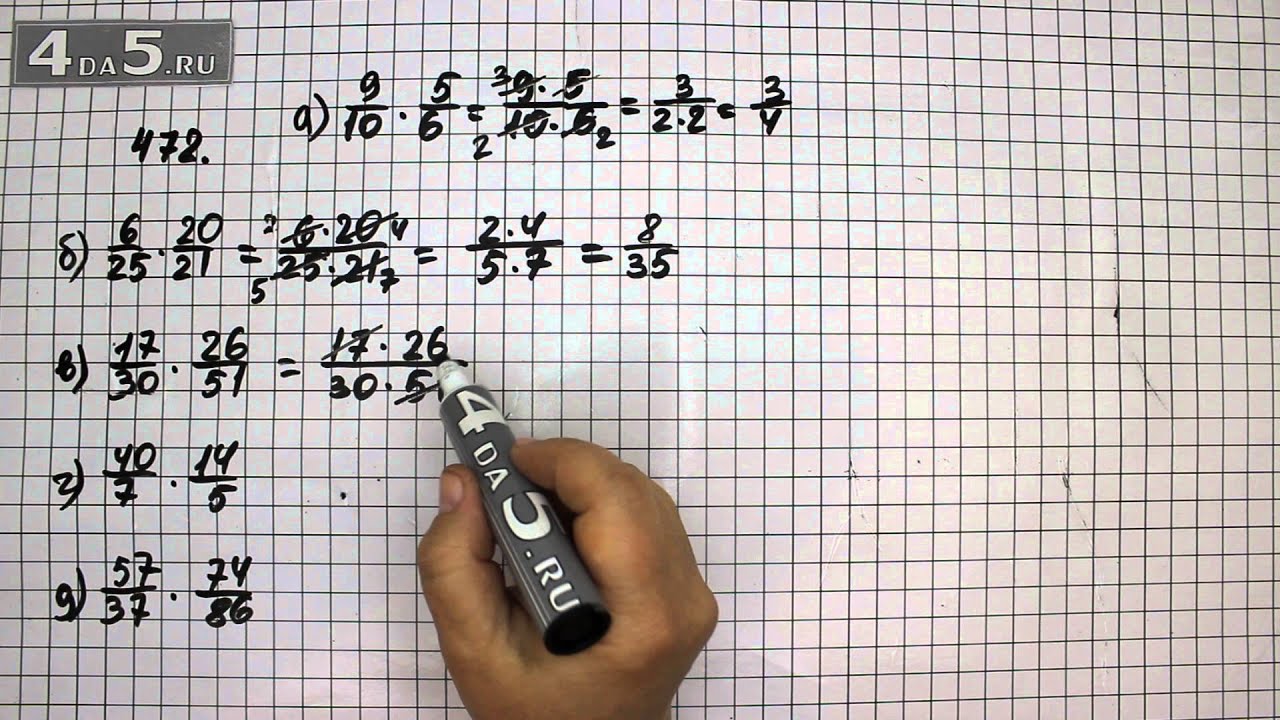 4DA5.RU
472.
а) 9/10 · 5/6 = 3 9 · 5 / 2 10 · 6 2 = 3/2·2 = 3/4
б) 6/25 · 20/21 = 2 6 · 20 4 / 5 25 · 21 7 = 2·4/5·7 = 8/35
в) 17/30 · 26/51 = 17 · 26 / 30 · 5
г) 40/7 · 14/5
д) 57/37 · 74/86
4DA5.RU